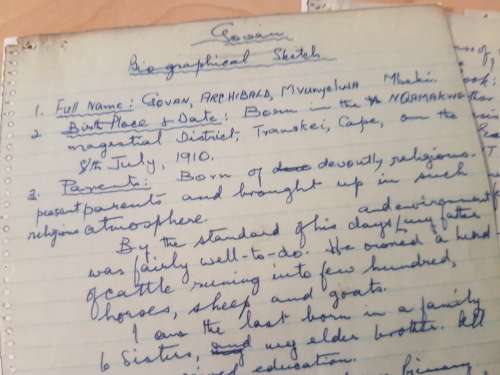 Govan
Biographical Sketch
1. Full Name: GOVAN, ARCHIBALD, Mvunyelwa Mbeki.
2. Birth Place & Date: Born in the NQAMAKWE
magestial District, Transkei, Cape, on the
8th July, 1910.
3. Parents: Born of devoutly religious-
peasant parents and brought up in such
religious atmosphere. and environment
By the standard of his days/my father
was fairly well-to-do. He owned a head
of cattle runing into few hundred,
horses, sheep and goats.
I am the last born in a family
6 Sisters, and my elder brother. All
education.
Primary,